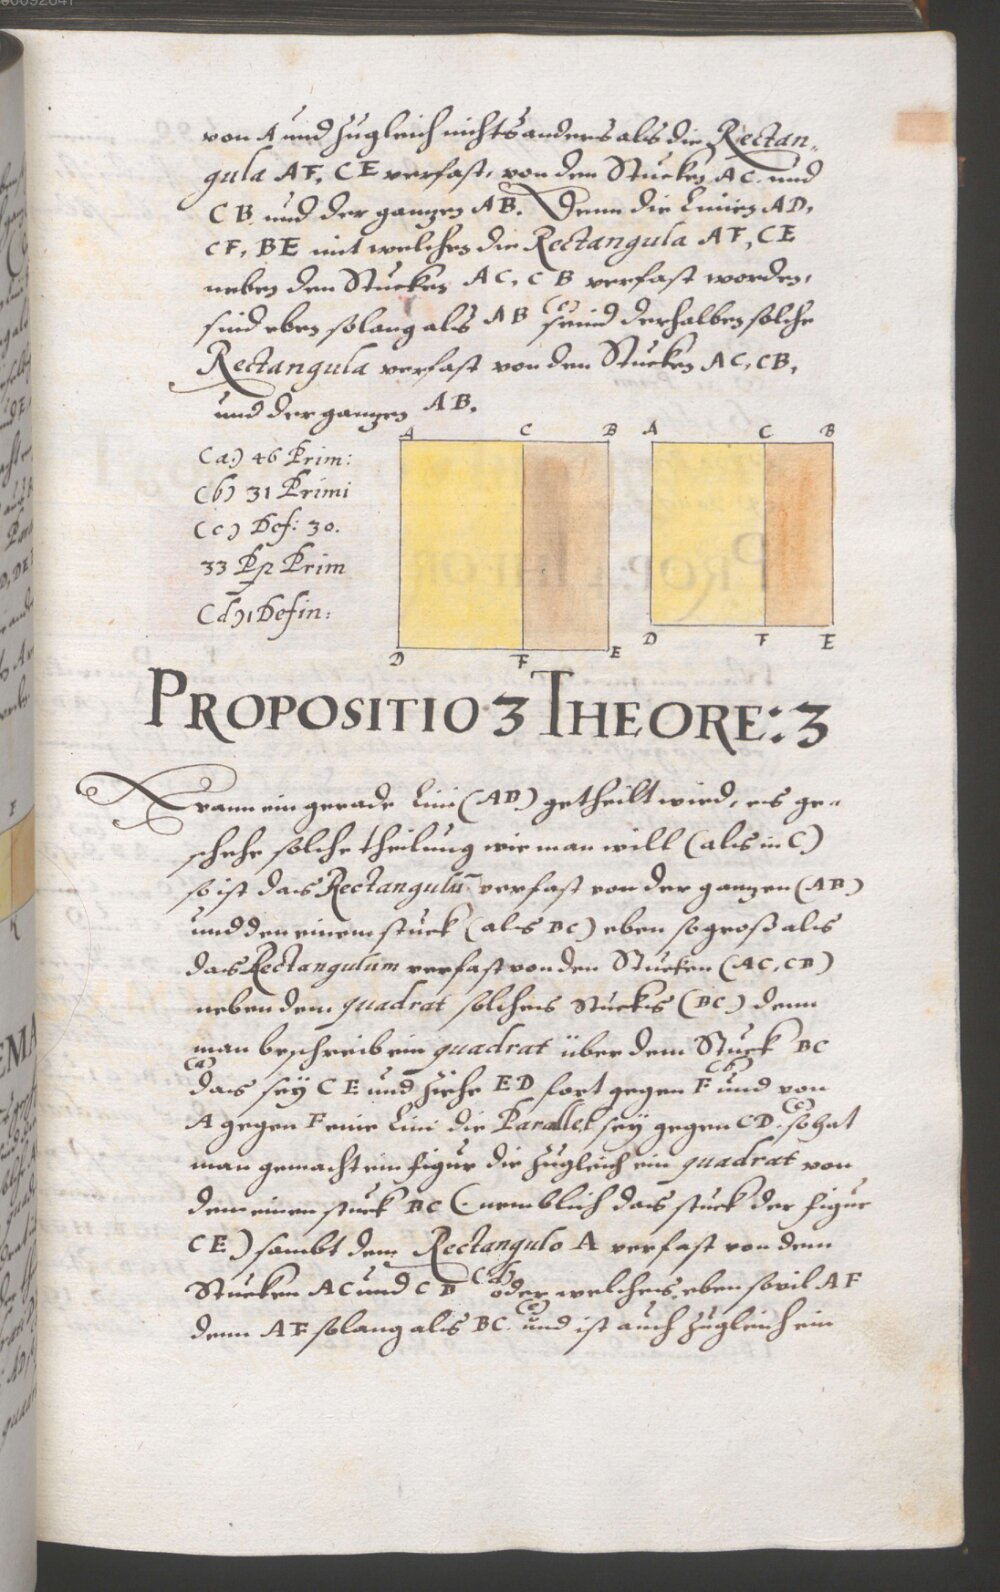 von A und zugleich nichts anders als die Rectan„
gula AF, CE verfast, von den Stucken AC. und
CB. und der ganzen AB. Denn die Linien AD,
CF, BE mit welchen die Rectangula AF, CE
neben den Stucken AC, CB verfast worden,
sind eben so lang als AB (c) seind derhalben solche
Rectangula verfast von den Stucken AC, CB,
und der ganzen AB.
(a) 46 Prim:
(b) 31 Primi
(c) Def: 30.
33 Pp Prim
(d) 1 Defin:
A C B
D F E
A C B
D F E
PROPOSITIO 3 THEORE: 3
Wann ein gerade Lini (AB) getheilt wird, es ge„
schehe solche theilung wie man will (als in C)
so ist das Rectangulū verfast von der ganzen (AB)
und den einem stuck (als BC) eben so groß als
das Rectangulum verfast von den Stucken (AC, CB)
neben dem quadrat solches Stucks (BC) denn
man beschreib ein quadrat über dem Stuck BC
(a) das sey CE und ziehe ED fort gegen F (b) und von
A gegen F eine Lini die Parallel sey gegen CD. (c) so hat
man gemacht ein figur die zugleich ein quadrat von
dem einen stuck BC (nemblich das stuck der figur
CE) sambt dem Rectangulo A verfast von dem
Stucken AC und CD (d) oder welches eben sovil AF
denn AF so lang als BC. (e) und ist auch zugleich ein